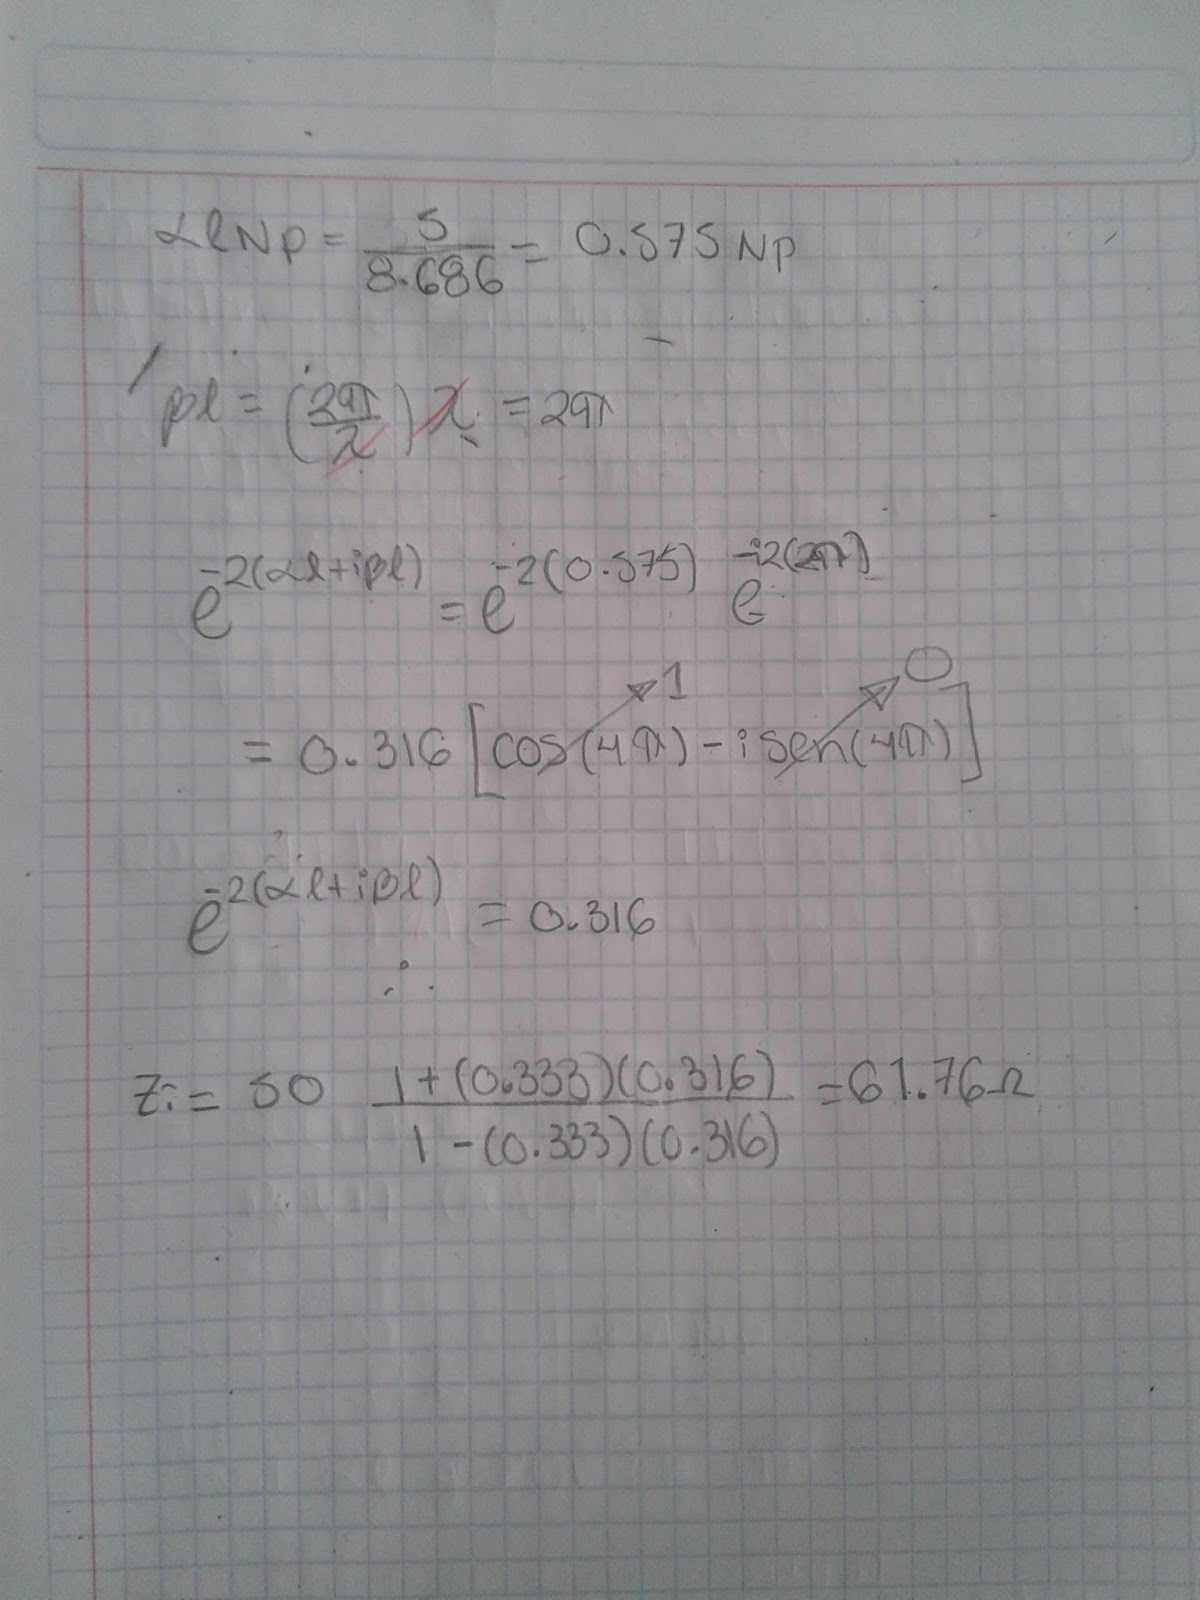 αlNp = 5/8.686 = 0.575 Np
βl = (2π/λ) λ = 2π
e^-2(αl+iβl) = e^-2(0.575) e^-i2(2π)
= 0.316 [cos(4π) - i sen(4π)] → 1 → 0
e^-2(αl+iβl) = 0.316
∴
Zi = 50 1+(0.333)(0.316)/1-(0.333)(0.316) = 61.76Ω